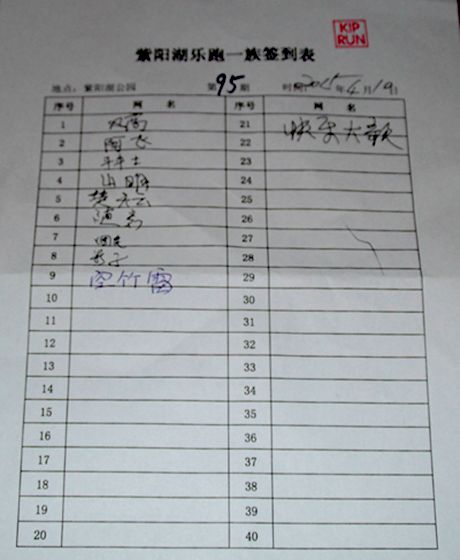 KIP
RUN
紫阳湖乐跑一族签到表
地点：紫阳湖公园 第95期 时间：2015年4月19日
序号 网 名 序号 网 名
1 21 快乐大歌
2 雨衣 22
3 23
4 山明 24
5 楚天云 25
6 26
7 27
8 影子 28
9 空竹雷 29
10 30
11 31
12 32
13 33
14 34
15 35
16 36
17 37
18 38
19 39
20 40